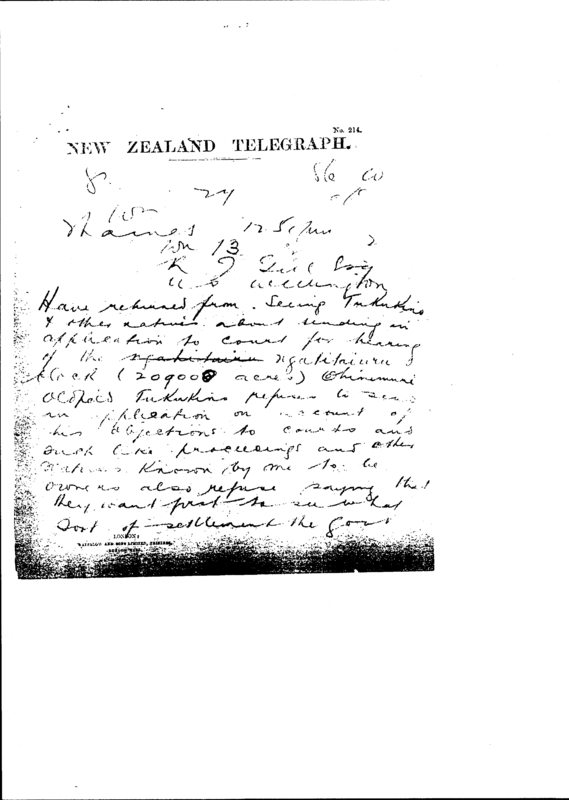 No. 214.
NEW ZEALAND TELEGRAPH.
24
Thames
13
R J Gill Esq
Wellington
Have returned from Seeing Tukukino
& other natives about sending in
application to court for hearing
of the Ngatitaiuru
block (209000 acres) Ohinemuri
Old Tukukino refuses to send
in application on account of
his objections to courts and
such like proceedings and other
Natives Known by me to be
owners also refuse saying that
they want first to see what
sort of settlement the govt
LONDON:
WATERLOW AND SONS LIMITED, PRINTERS,